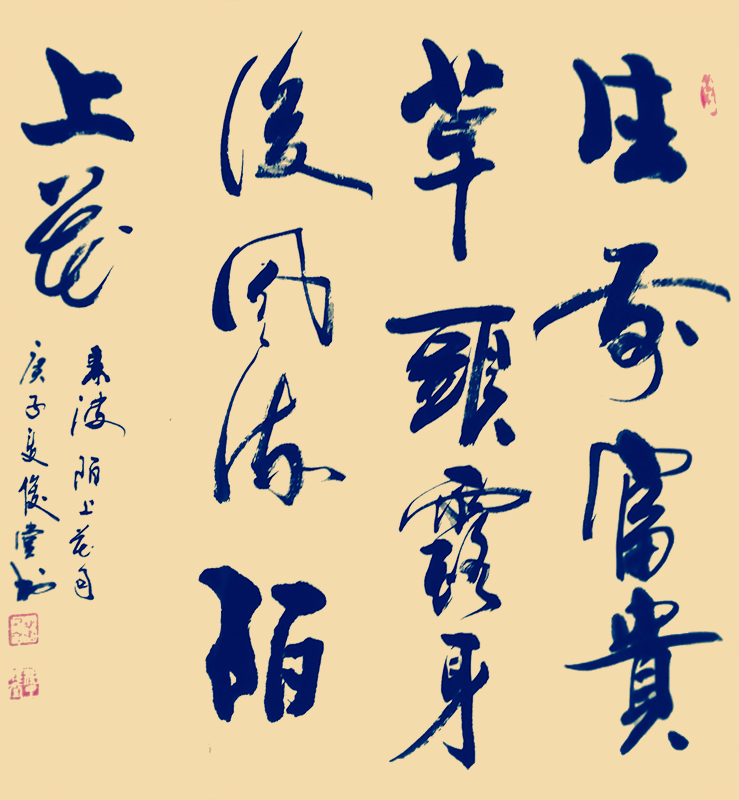 生前富貴
草頭露身
後風流陌
上花
東坡陌上花句
庚子夏俊堂书